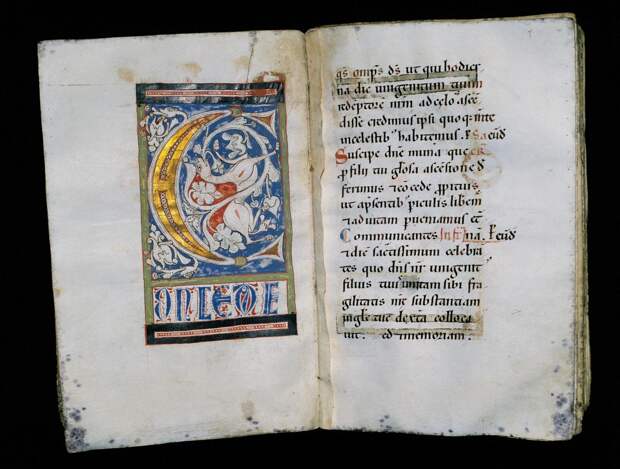 C
ONCEDE
q̄s omp̄s d̄s ut qui hodier
na die unigenitum tuum
redēptorē nr̄m ad celos ascē
disse credimus ipsi quoq; m̄te
incelestib; habitemus. P. Sacr̄d
Suscipe dn̄e munera que
p filii tui gl̄osa ascēsione d̄
ferimus ⁊ cōcede ppitius
ut apsentib; piculis libem̄
⁊ aduitam pueniamus et̄
Communicantes
⁊ diē sacratissimum celebrā
tes quo dn̄s nr̄ unigenit
filius tuus unitam sibi fra
gilitatis nr̄e substantiam
inglē tue dextr̄a colloca
uit. ed memoriam.